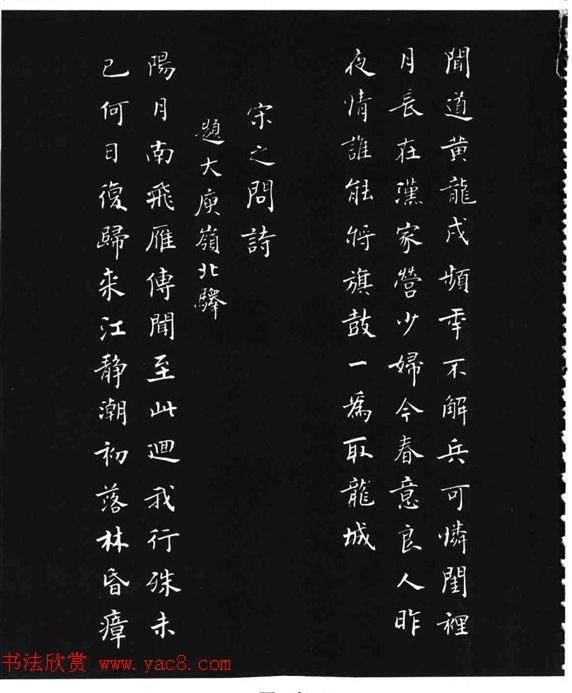 聞道黃龍戍頻年不解兵可憐閨裡
月長在漢家營少婦今春意良人昨
夜情誰能將旗鼓一為取龍城
宋之問詩
題大庾嶺北驛
陽月南飛雁傳聞至此迴我行殊未
已何日復歸來江静潮初落林昏瘴
书法欣赏 www.yac8.com